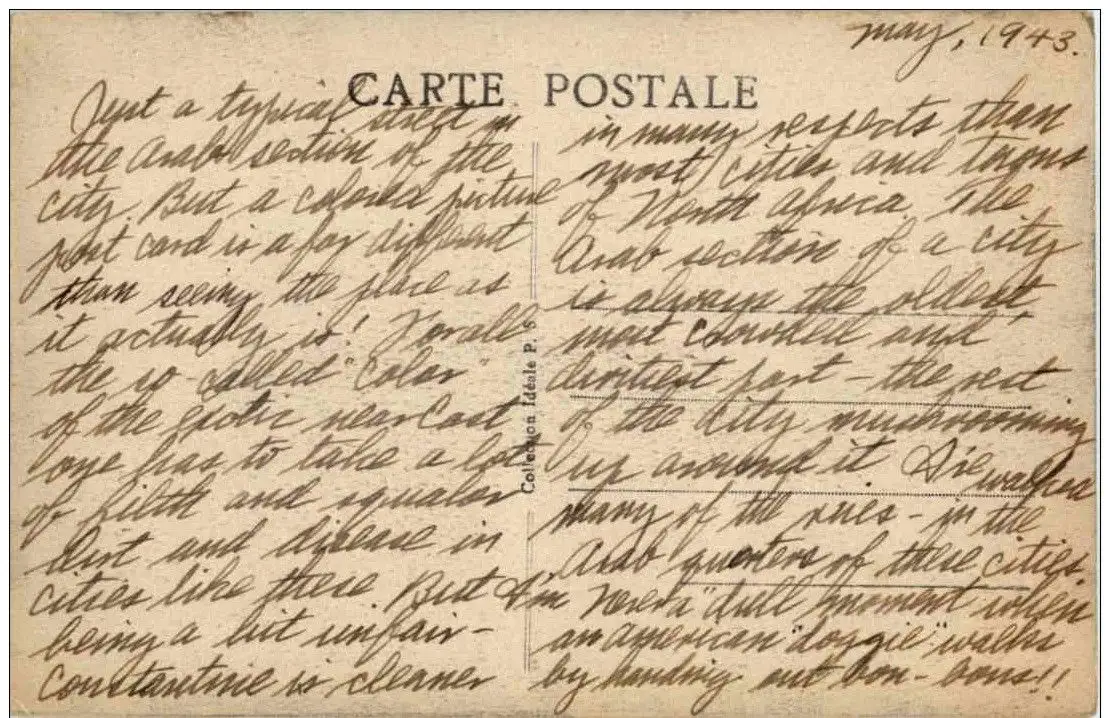 May, 1943.
CARTE POSTALE
Just a typical street in
the Arab section of the
city. But a colored picture
post card is a far different
than seeing the place as
it actually is! For all
the so-called "color"
of the exotic near East
one has to take a lot
of filth and squalor
dirt and disease in
cities like these. But I'm
being a bit unfair-
Constantine is cleaner
Collection Idéale P. S
in many respects than
most cities and towns
of North Africa. The
Arab section of a city
is always the oldest,
most crowded and
dirtiest part - the rest
of the city mushrooming
up around it. I've walked
many of the rues - in the
Arab quarters of these cities.
Never a dull moment when
an American "doggie" walks
by handing out bon-bons!!